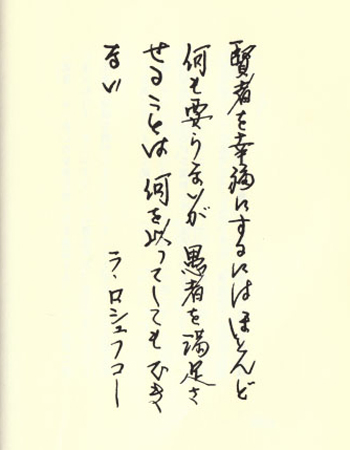 賢者を幸福にするにはほとんど
何も要らないが 愚者を満足さ
せることは 何を以ってしてもでき
ない
ラ・ロシュフコー